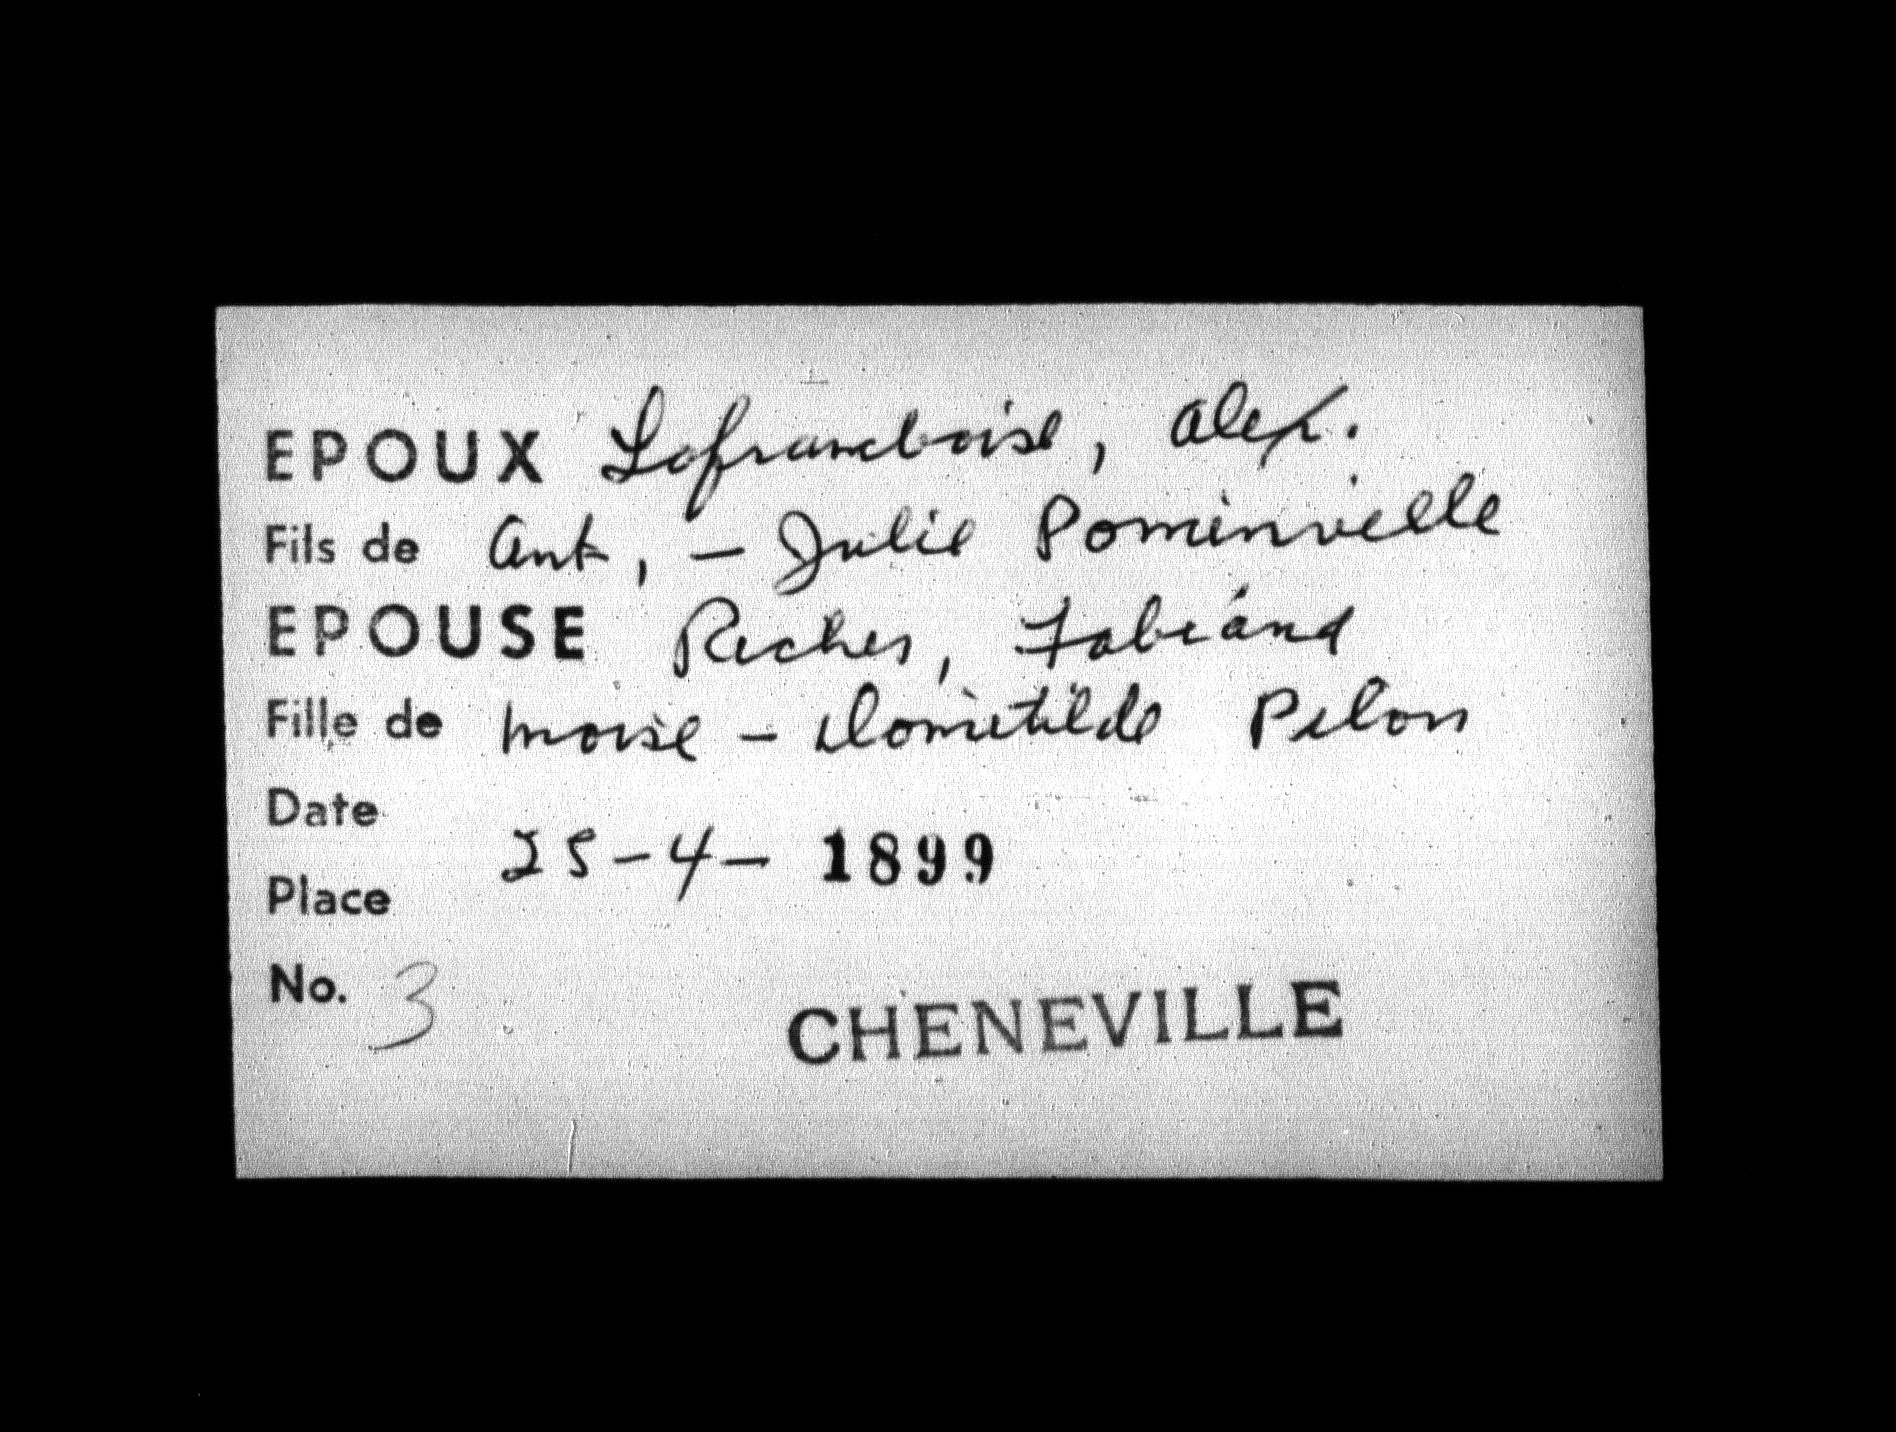 EPOUX Laframboise, Alex.
Fils de Ant, - Julie Pominville
EPOUSE Riches, Fabiana
Fille de Moise - Dometilde Pilon
Date
25-4-1899
Place
No. 3
CHENEVILLE